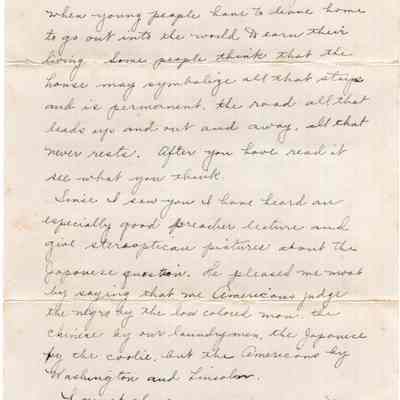 when young people have to leave home
to go out into the world & earn their
living. Some people think that the
house may symbolize all that stays
and is permanent, the road all that
leads up and out and away, all that
never rests. After you have read it
see what you think.
Since I saw you I have heard an
especially good preacher lecture and
give stereoptican pictures about the
Japanese question. He pleased me most
by saying that we Americans judge
the negro by the low colored man, the
Chinese by our laundrymen, the Japanese
by the coolie, but the Americans by
Washington and Lincoln.